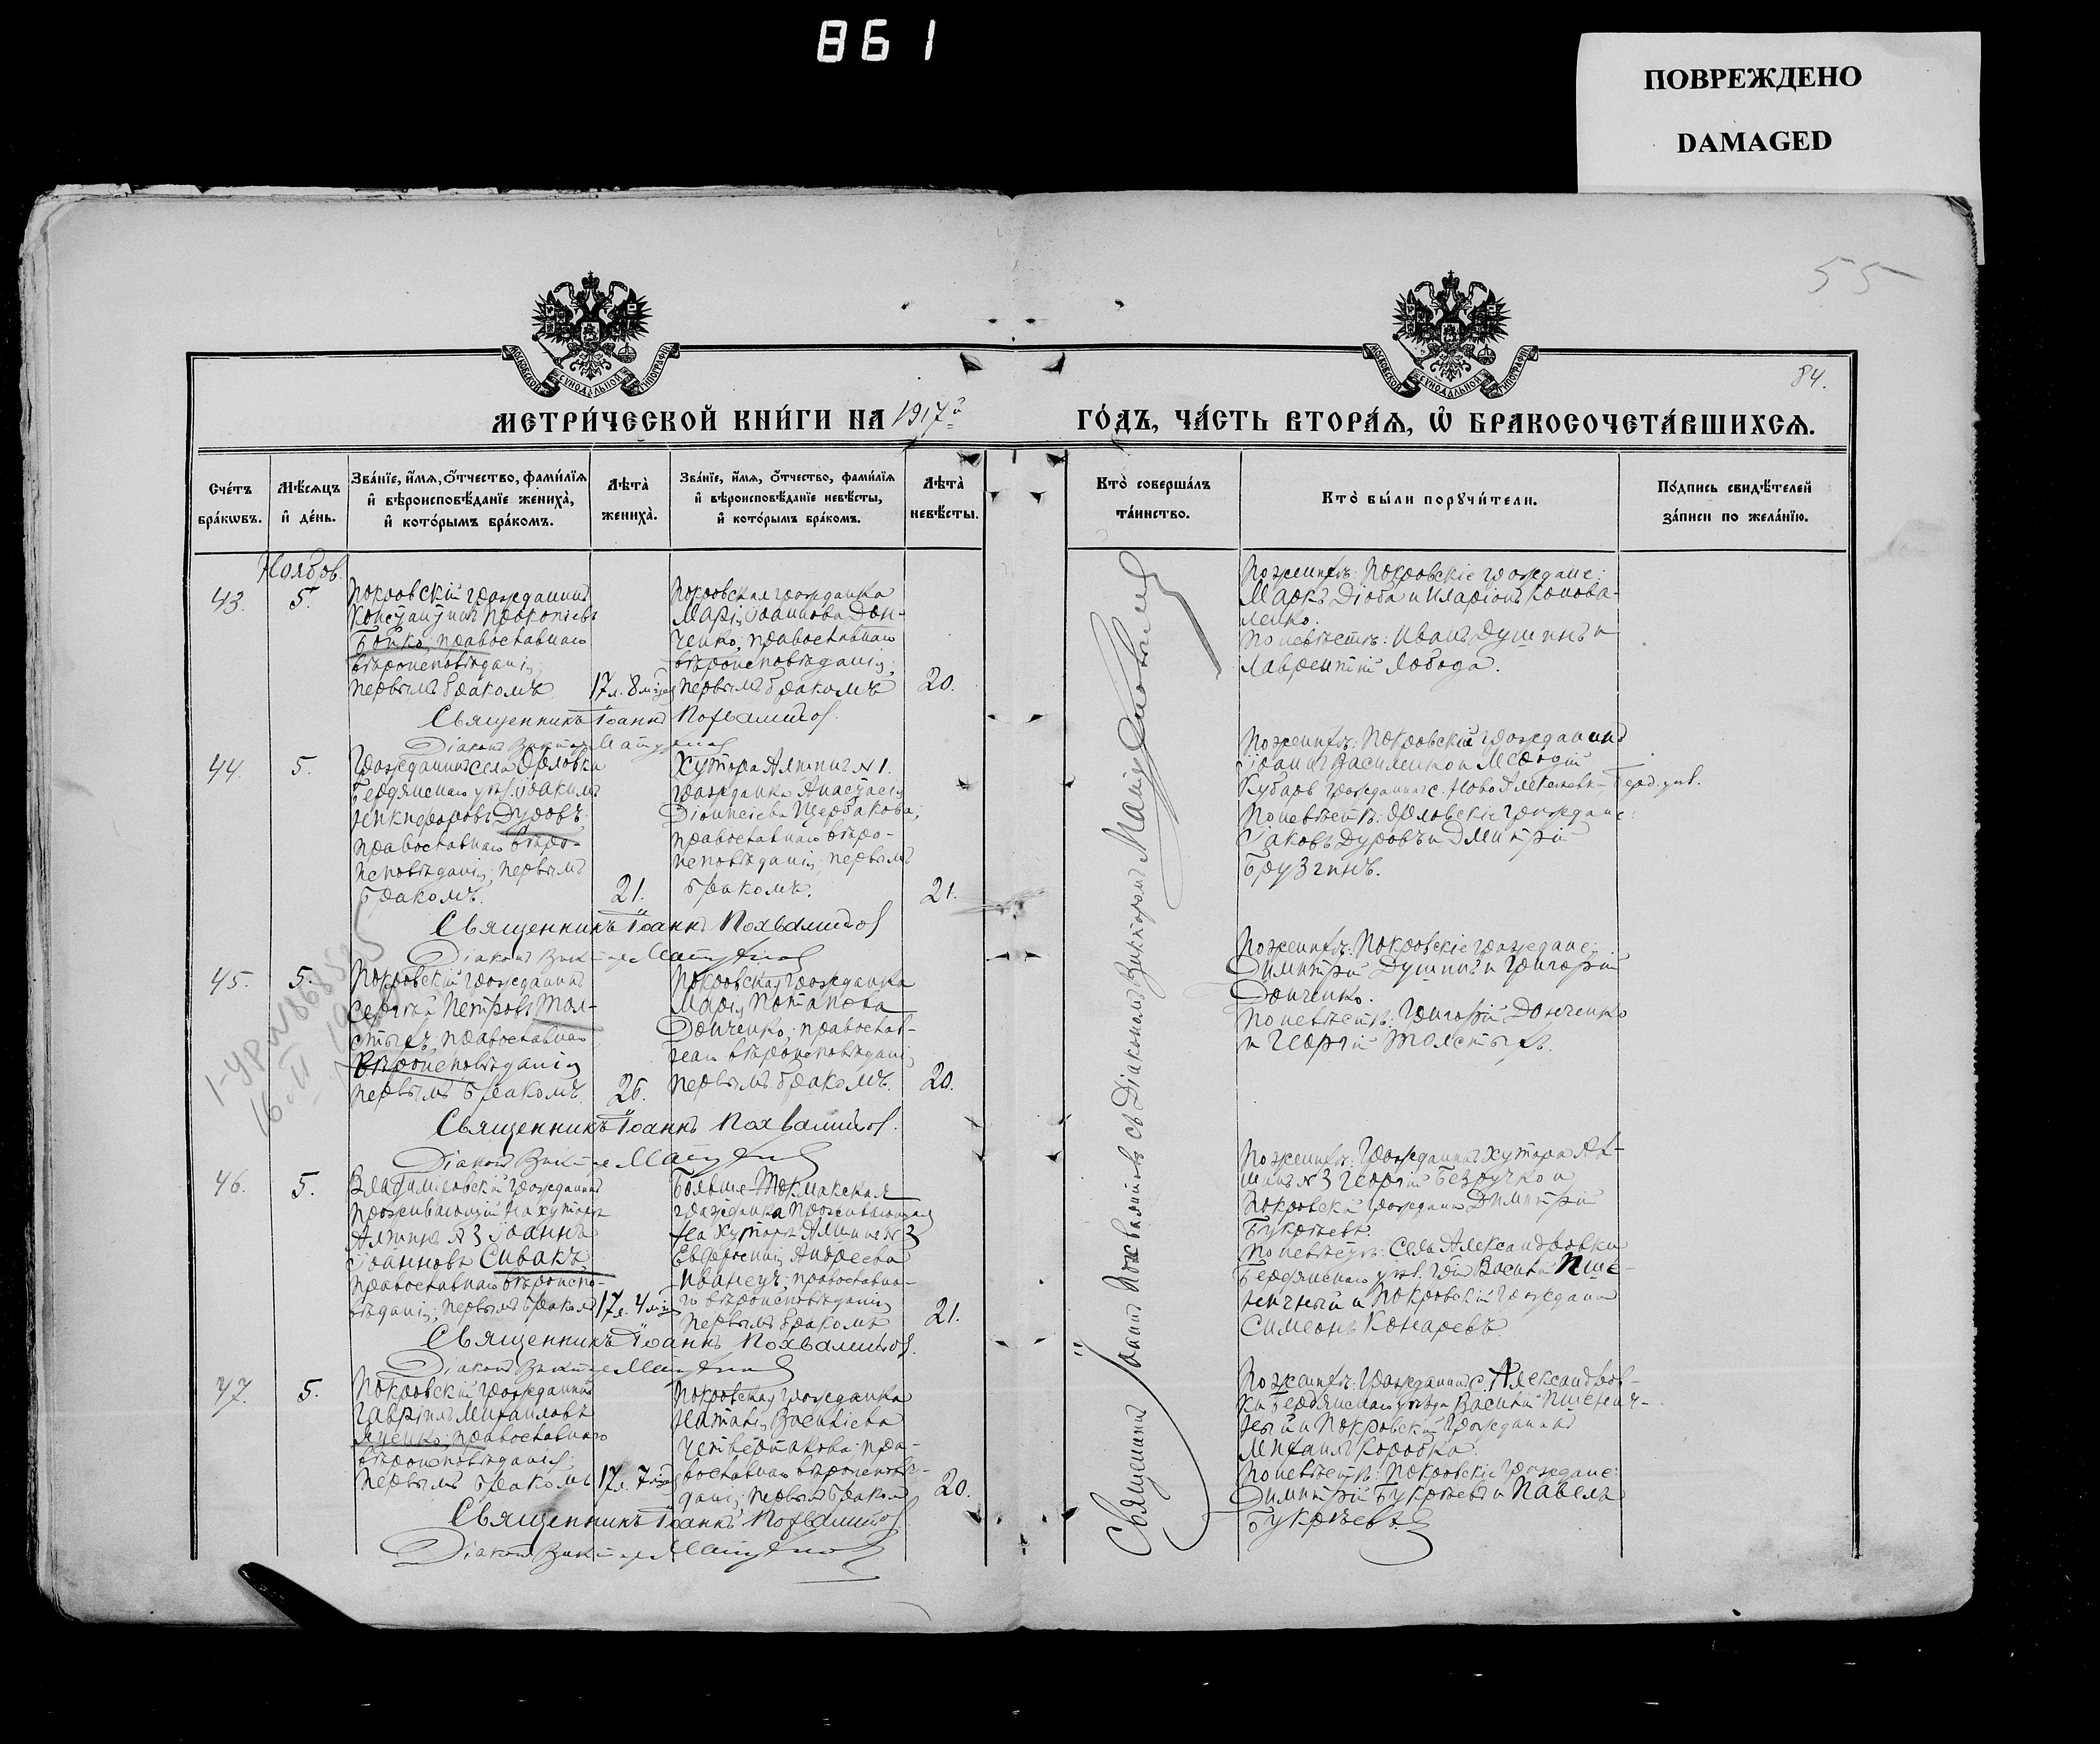 861
ПОВРЕЖДЕНО
DAMAGED
55
84.
МОСКОВСКОЙ СѴНОДАЛЬНОЙ ТИПОГРАФІИ
МОСКОВСКОЙ СѴНОДАЛЬНОЙ ТИПОГРАФІИ
МЕТРИ́ЧЕСКОЙ КНИ́ГИ НА 1917й ГО́ДЪ, ЧА́СТЬ ВТОРА́Ѧ, Ѡ҆ БРАКОСОЧЕТА́ВШИХСѦ.
Сче́тъ бра́кѡвъ.
Мѣ́сяцъ и҆ де́нь.
Зва́нїе, и҆́мя, ѻ҆́тчество, фами́лїя
и҆ вѣроисповѣ́данїе жениха̀,
и҆ кото́рымъ бра́комъ.
Лѣта̀ жениха̀.
Зва́нїе, и҆́мя, ѻ҆́тчество, фами́лїя
и҆ вѣроисповѣ́данїе невѣ́сты,
и҆ кото́рымъ бра́комъ.
Лѣта̀ невѣ́сты.
Кто̀ соверша́лъ
та́инство.
Кто̀ бы́ли порꙋчи́тели.
По́дпись свидѣ́телей
за́писи по жела́нїю.
Ноябрь.
43.
5.
Покровскій гражданинъ
Константинъ Прокопіевъ
Бойко, православнаго
вѣроисповѣданія,
первымъ бракомъ
17 л. 8 мѣс
Покровская гражданка
Марія Іоаннова Дон-
ченко, православнаго
вѣроисповѣданія,
первымъ бракомъ
20.
По женихѣ: Покровскіе граждане:
Маркъ Діоба и Иларіонъ Конова-
ленко.
По невѣстѣ: Иванъ Душинъ и
Лаврентій Лобода.
Священникъ Іоаннъ Похвалитовъ.
Діаконъ Викторъ
44.
5.
Гражданинъ села Орловка
Бердянскаго уѣз. Іоакимъ
Никифоровъ Дуровъ
православнаго вѣро-
исповѣданія, первымъ
бракомъ.
21.
Хутора Алтинъ №1.
гражданка Анастасія
Діонисіева Щербакова,
православнаго вѣро-
исповѣданія, первымъ
бракомъ.
21.
По женихѣ: Покровскій гражданинъ
Іоаннъ Василенко и Меѳодій
Кубарь гражданинъ с. Ново Алексѣевки Берд. уѣз.
По невѣстѣ: Орловскіе граждане:
Іаковъ Дуровъ и Дмитрій
Брузгинъ.
Священникъ Іоаннъ Похвалитовъ
Діаконъ Викторъ
45.
5.
Покровскій гражданинъ
Сергѣй Петровъ Тол-
стыхъ, православнаго
вѣроисповѣданія
первымъ бракомъ.
26.
Покровская гражданка
Марія Потапова
Донченко, православ-
наго вѣроисповѣданія
первымъ бракомъ.
20.
По женихѣ: Покровскіе граждане:
Димитрій Душинъ и Григорій
Донченко.
По невѣстѣ: Григорій Донченко
и Георгій Толстыхъ.
Священникъ Іоаннъ Похвалитовъ.
Діаконъ Викторъ
46.
5.
Владиміровскій гражданинъ
проживающій на хуторѣ
Алтинъ №3 Іоаннъ
Іоанновъ Сивакъ
православнаго вѣроиспо-
вѣданія, первымъ бракомъ
17 л. 4 мѣс
Больше-Токмакская
гражданка проживающая
на хуторѣ Алтинъ №3
Евфросинія Андреева
Иванецъ, православна-
го вѣроисповѣданія
первымъ бракомъ
21.
По женихѣ: Гражданинъ хутора Ал-
тинъ №3 Георгій Безручко и
Покровскій гражданинъ Димитрій
Букрѣевъ.
По невѣстѣ: Села Александровки
Бердянскаго уѣз. гр. Василій Пше-
ничный и Покровскій гражданинъ
Симеонъ Комаревъ.
Священникъ Іоаннъ Похвалитовъ.
Діаконъ Викторъ
47.
5.
Покровскій гражданинъ
Гавріилъ Михаиловъ
Яценко, православнаго
вѣроисповѣданія,
первымъ бракомъ
17 л. 7 мѣс
Покровская гражданка
Наталія Василіева
Четвертакова, пра-
вославнаго вѣроисповѣ-
данія, первымъ бракомъ
20.
По женихѣ: Гражданинъ с. Александров-
ки Бердянскаго уѣзда Василій Пшенич-
ный и Покровскій гражданинъ
Михаилъ Коробка.
По невѣстѣ: Покровскіе граждане:
Димитрій Букрѣевъ и Павелъ
Букрѣевъ.
Священникъ Іоаннъ Похвалитовъ.
Діаконъ Викторъ
Священникъ Іоаннъ Похвалитовъ съ Діакономъ Викторомъ